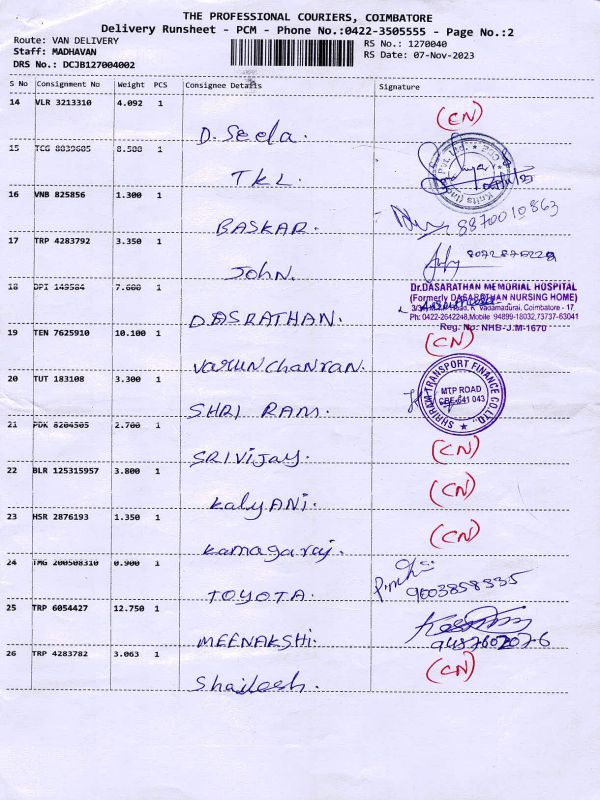 THE PROFESSIONAL COURIERS, COIMBATORE
Delivery Runsheet - PCM - Phone No.:0422-3505555 - Page No.:2
Route: VAN DELIVERY RS No.: 1270040
Staff: MADHAVAN RS Date: 07-Nov-2023
DRS No.: DCJB127004002
S No Consignment No Weight PCS Consignee Details Signature
14 VLR 3213310 4.092 1 (CN)
D. Seela.
15 TCG 8039605 8.500 1
TKL.
16 VNB 825856 1.300 1 8870010863
BASKAR.
17 TRP 4283792 3.350 1
John.
18 DPI 149584 7.600 1 Dr.DASARATHAN MEMORIAL HOSPITAL
(Formerly DASARATHAN NURSING HOME)
Vadamadurai, Coimbatore - 17,
Ph: 0422-2642248,Mobile 94899-18032,73737-63041
DASRATHAN. Reg. No: NHB-J.M-1670
19 TEN 7625910 10.100 1 (CN)
Varunchanran.
20 TUT 183108 3.300 1 SHRIRAM TRANSPORT FINANCE CO. LTD.,
MTP ROAD
CBE-641 043
SHRI RAM.
21 PDK 8204505 2.700 1 (CN)
SRIVIJAY.
22 BLR 125315957 3.800 1 (CN)
kalyANi.
23 HSR 2876193 1.350 1 (CN)
kamagaraj.
24 TMG 200508310 0.900 1
9003858335
TOYOTA.
25 TRP 6054427 12.750 1
MEENAKSHI.
26 TRP 4283782 3.063 1 (CN)
Shailesh.